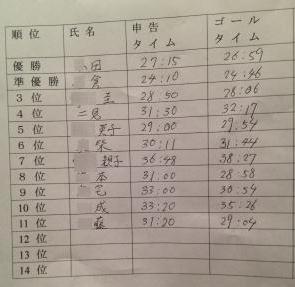 順位 氏名 申告タイム ゴールタイム
優勝 田 27:15 26:59
準優勝 倉 24:10 24:46
3 位 28:50 28:06
4 位 二見 31:30 32:17
5 位 子 29:00 29:54
6 位 栄 30:11 31:44
7 位 親子 36:48 38:27
8 位 本 31:00 28:58
9 位 宅 33:00 30:54
10 位 成 33:20 35:26
11 位 藤 31:20 29:04
12 位
13 位
14 位